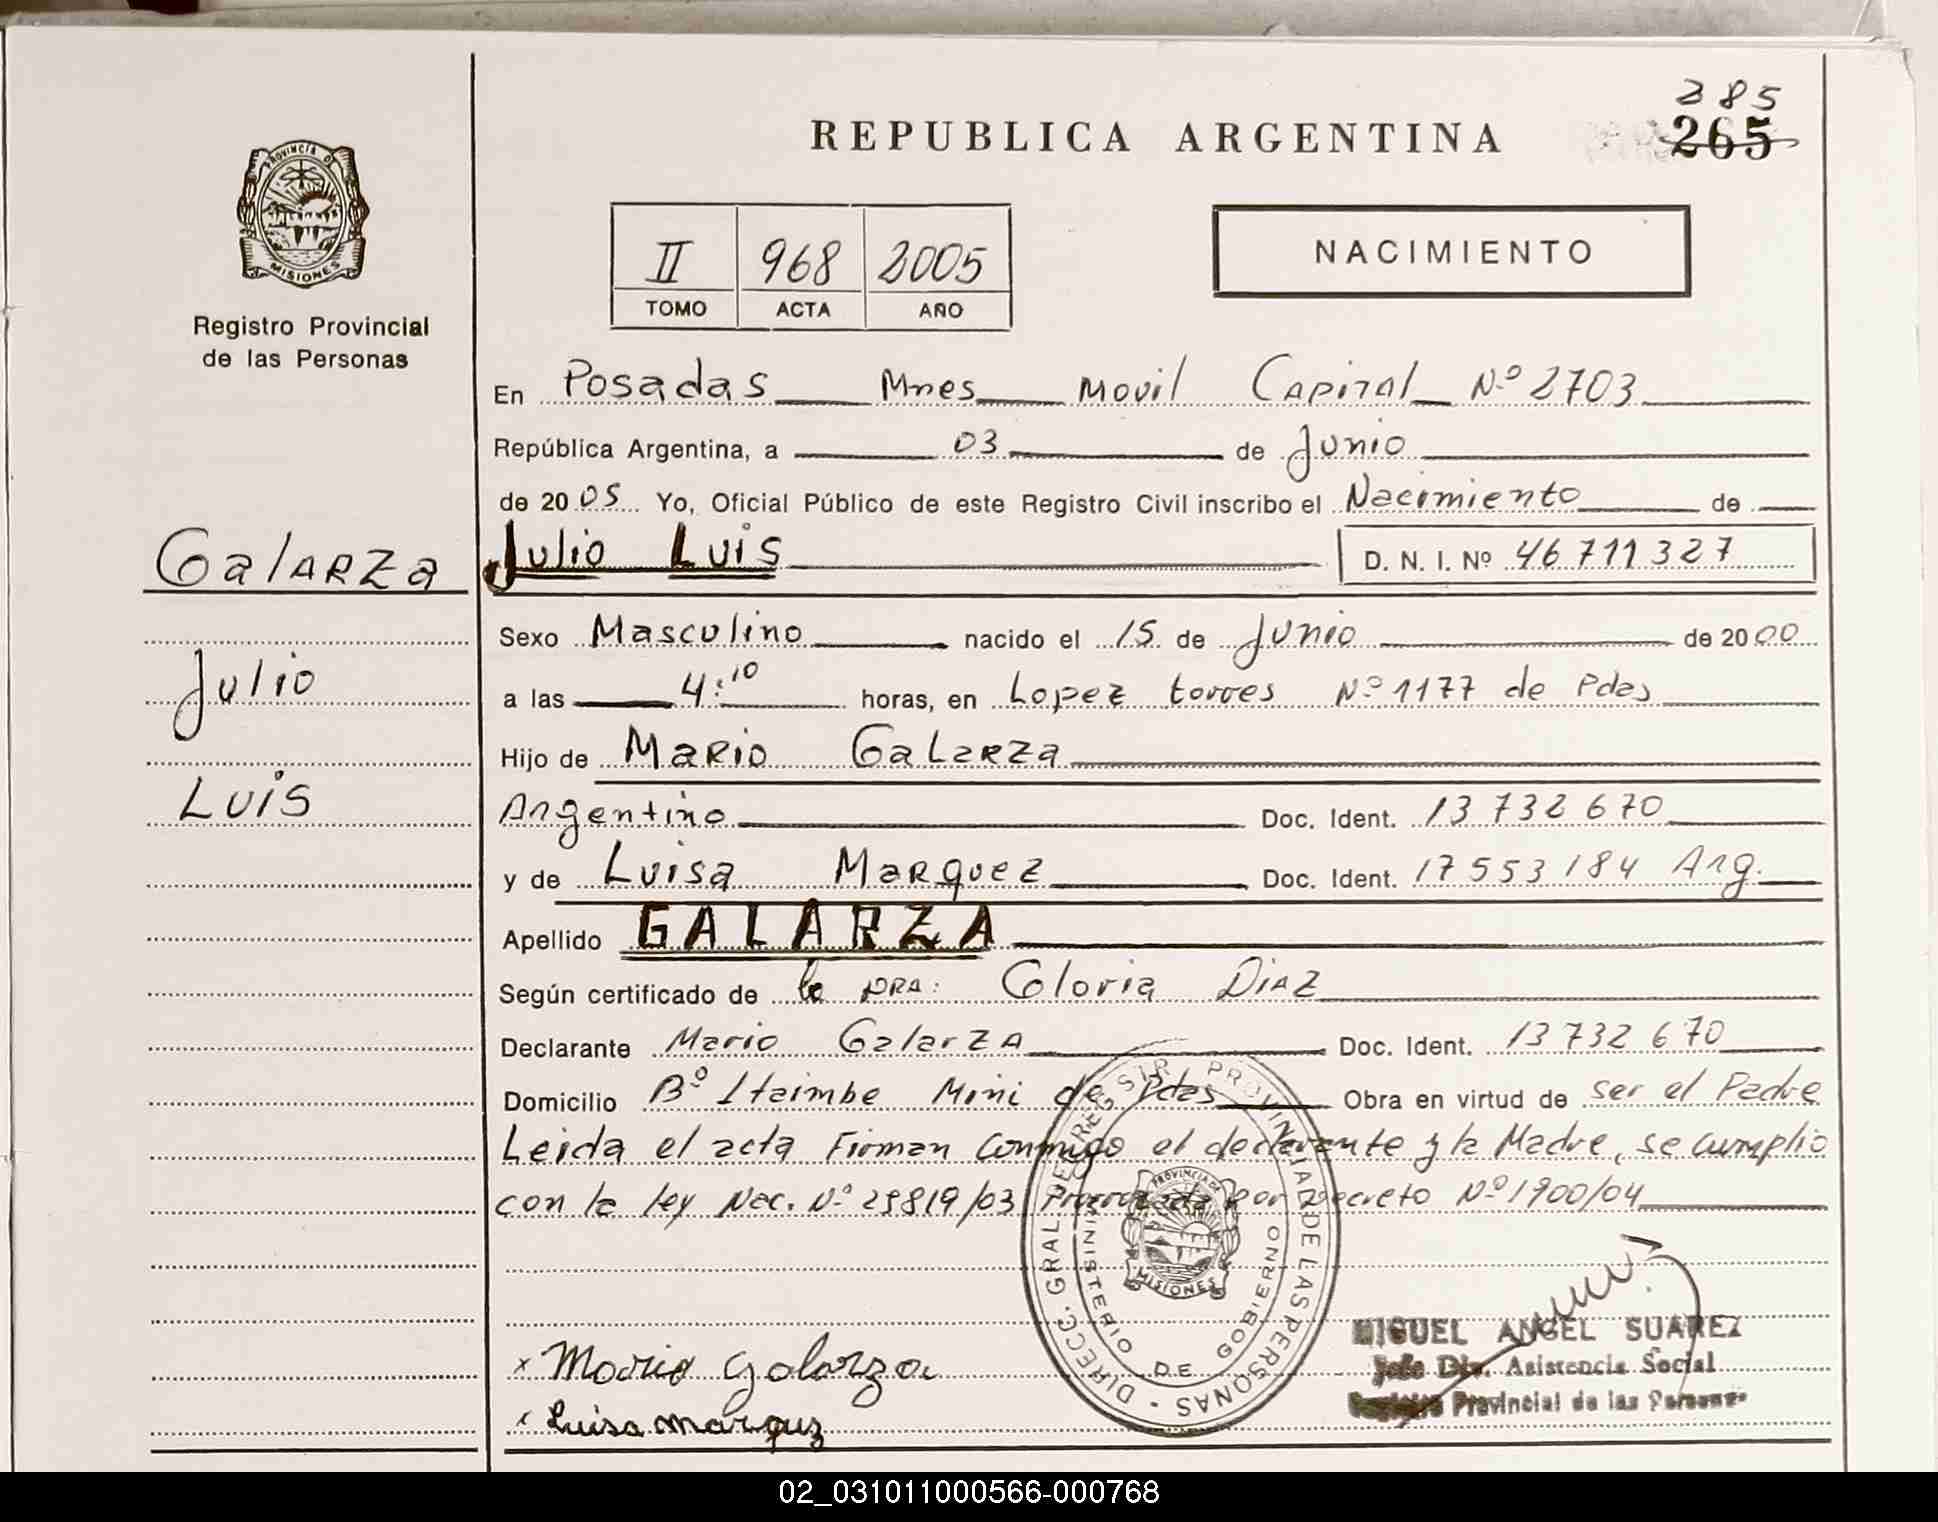 385
265
REPUBLICA ARGENTINA
PROVINCIA D
MISIONES
Registro Provincial
de las Personas
II 968 2005
TOMO ACTA AÑO
NACIMIENTO
En Posadas Mnes Movil Capital Nº 2703
República Argentina, a 03 de Junio
de 20 05 Yo, Oficial Público de este Registro Civil inscribo el Nacimiento de
Galarza
Julio Luis D. N. I. Nº 46 711 327
Sexo Masculino nacido el 15 de Junio de 20 00
Julio
a las 4:10 horas, en Lopez torres Nº 1177 de Pdas
Hijo de Mario Galarza
Luis
Argentino Doc. Ident. 13 732 670
y de Luisa Marquez Doc. Ident. 17 553 184 Arg.
Apellido GALARZA
Según certificado de la DRA: Gloria Diaz
Declarante Mario Galarza Doc. Ident. 13 732 670
Domicilio Bº Itaimbe Mini de Pdas Obra en virtud de ser el Padre
Leida el acta Firman Conmigo el declarante y la Madre, se cumplio
con la ley Nac. Nº 25819/03 Prorrogada por Decreto Nº 1900/04
DIRECC. GRAL. DE REGISTR PROVINCIAL DE LAS PERSONAS
MINISTERIO DE GOBIERNO
PROVINCIA DE
MISIONES
MIGUEL ANGEL SUAREZ
Jefe Div. Asistencia Social
Registro Provincial de las Personas
x Mario Galarza
x Luisa marquz
02_031011000566-000768